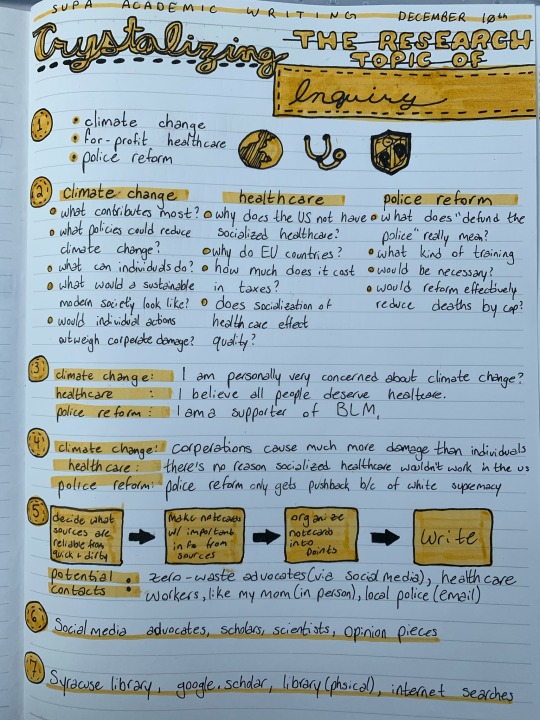 SUPA ACADEMIC WRITING DECEMBER 10th
Crystalizing THE RESEARCH
TOPIC OF
Inquiry
1
• climate change
• for-profit healthcare
• police reform
2
climate change
• what contributes most?
• what policies could reduce
climate change?
• what can individuals do?
• what would a sustainable
modern society look like?
• would individual actions
outweigh corporate damage?
healthcare
• why does the US not have
socialized healthcare?
• why do EU countries?
• how much does it cost
in taxes?
• does socialization of
healthcare effect
quality?
police reform
• what does "defund the
police" really mean?
• what kind of training
• would be necessary?
• would reform effectively
reduce deaths by cop?
3
climate change: I am personally very concerned about climate change?
healthcare: I believe all people deserve healtcare.
police reform: I am a supporter of BLM.
4
climate change: corperations cause much more damage than individuals
healthcare: there's no reason socialized healthcare wouldn't work in the us
police reform: police reform only gets pushback b/c of white supremacy
5
decide what
sources are
reliable from
quick + dirty
make notecards
w/ important
info from
sources
organize
notecards
into
points
write
potential contacts: zero-waste advocates (via social media), healthcare
workers, like my mom (in person), local police (email)
6
Social media advocates, scholars, scientists, opinion pieces
7
Syracuse library, google.scholar, library (phsical), internet searches